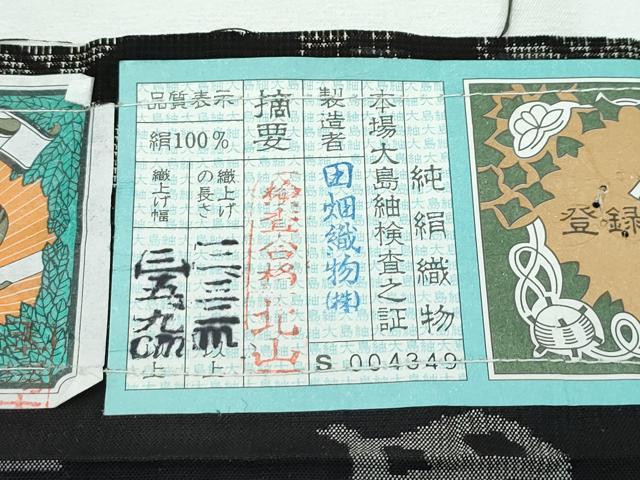 純絹織物
本場大島紬検査之証
製造者
田畑織物(株)
S 004349
摘要
検査合格 北山
品質表示
絹100%
織上げの長さ
一二、三三m以上
織上げ幅
三五.九cm以上
登録